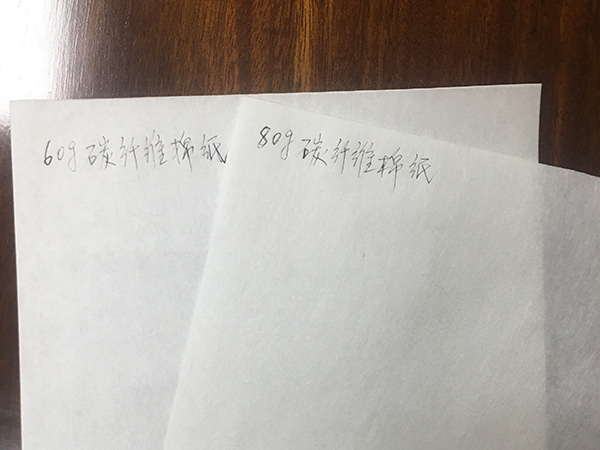 60g碳纤维棉纸
80g碳纤维棉纸